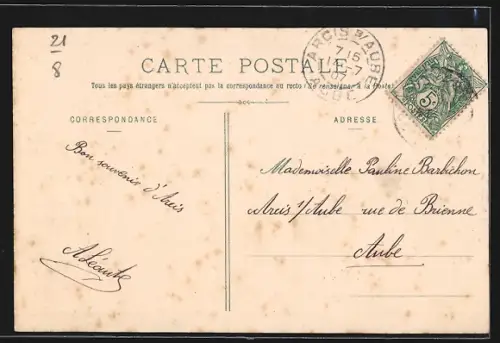 21
8
CARTE POSTALE
ARCIS S/AUBE
7 15
-7
07
AUBE
Tous les pays étrangers n'acceptent pas la correspondance au recto (Se renseigner à la Poste)
CORRESPONDANCE
ADRESSE
5
Bon souvenir d'Arcis
Mademoiselle Pauline Barbichon
Arcis s/Aube rue de Brienne
Aube